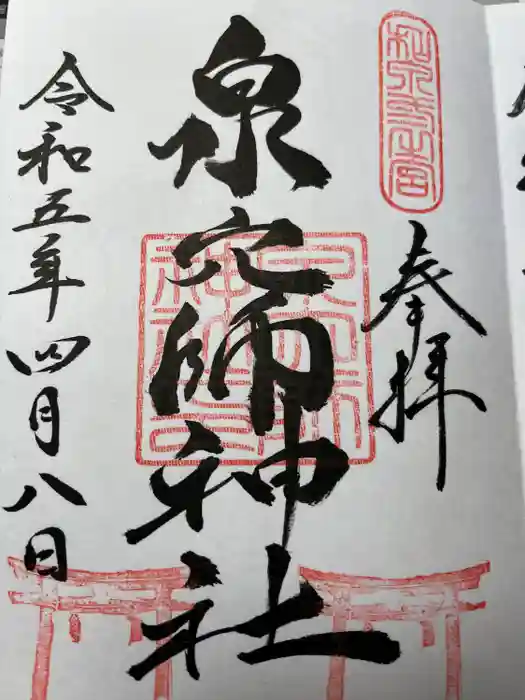 奉拝
泉穴師神社
令和五年四月八日